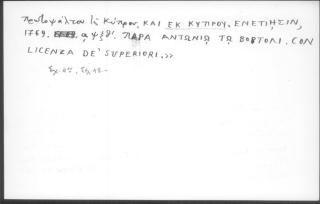 πρωτοψάλτου τῆς Κύπρου, ΚΑΙ ΕΚ ΚΥΠΡΟΥ. ΕΝΕΤΙΗΣΙΝ,
1769. αψξθ'. ΠΑΡΑ ΑΝΤΩΝΙΩ ΤΩ ΒΟΡΤΟΛΙ. CON
LICENZA DE' SUPERIORI.>>